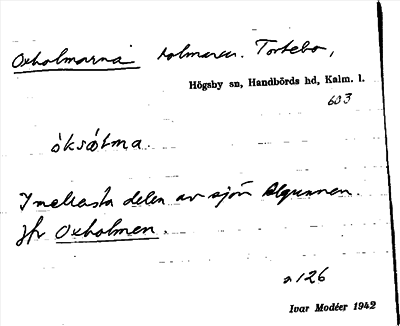 Oxholmarna holmarar. Tortebo,
Högsby sn, Handbörds hd, Kalm. l.
603
óksótma.
Ynehasta delen av sjön Algunnen.
Jfr Oxholmen.
a 126
Ivar Modéer 1942